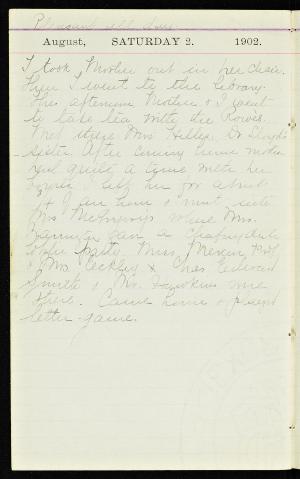 Pleasant all day.
August, SATURDAY 2. 1902.
I took Mother out in her chair.
Then I went to the library.
This afternoon Mother & I went
to take tea with the Rowes.
Met there Mrs Hillis, Dr Lloyd's
sister. After coming home mother
quite a time with her
I left her for about
an hour & went into
Mrs where Mrs.
Barrington gave a Chafing dish
party. Miss Prof
& Mrs. & Chas. Edward
Smith & Mr. Hawkins were
there. Came home & played
letter-game.